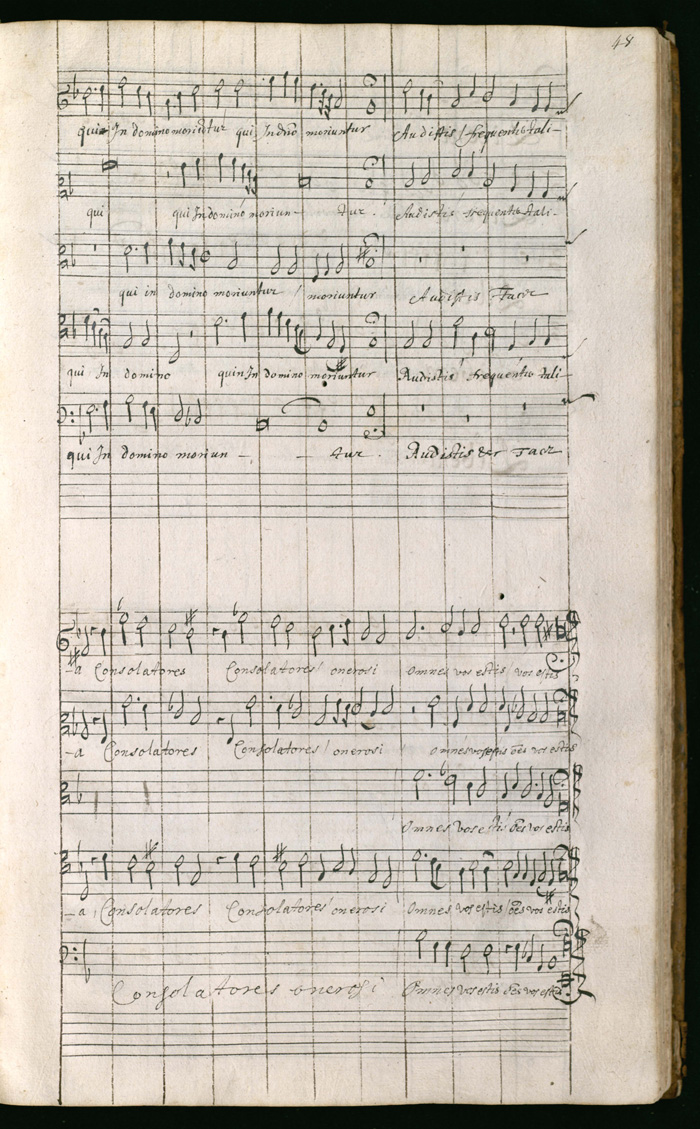 48
qui In domino moriūtur qui In dnō moriuntur Audistis frequentio tali-
qui qui In domino moriun- tur. Audistis frequentio tali-
qui in domino moriuntur moriuntur Audistis Tacz
qui In domino qui In domino moriuntur Audistis frequentio tali-
qui In domino moriun- - tur. Audistis Tacz
-a Consolatores Consolatores onerosi Omnes vos estis vos estis
-a Consolatores Consolatores onerosi omnes vos estis oēs vos estis
Omnes vos estis oēs vos estis
-a Consolatores Consolatores onerosi Omnes vos estis oēs vos estis
Consolatores onerosi Omnes vos estis oēs vos estis